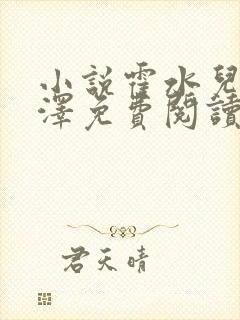 小說霍水兒
澤免費閱讀
君天晴